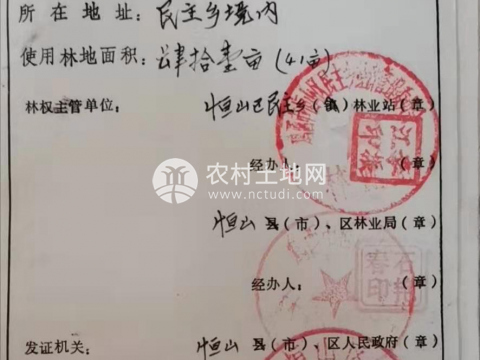 所在地址：民主乡境内
使用林地面积：肆拾壹亩（41亩）
林权主管单位：恒山区民主乡（镇）林业站（章）
经办人：（章）
农村土地网
www.nctudi.com
恒山县（市）、区林业局（章）
经办人：（章）
发证机关：恒山县（市）、区人民政府（章）